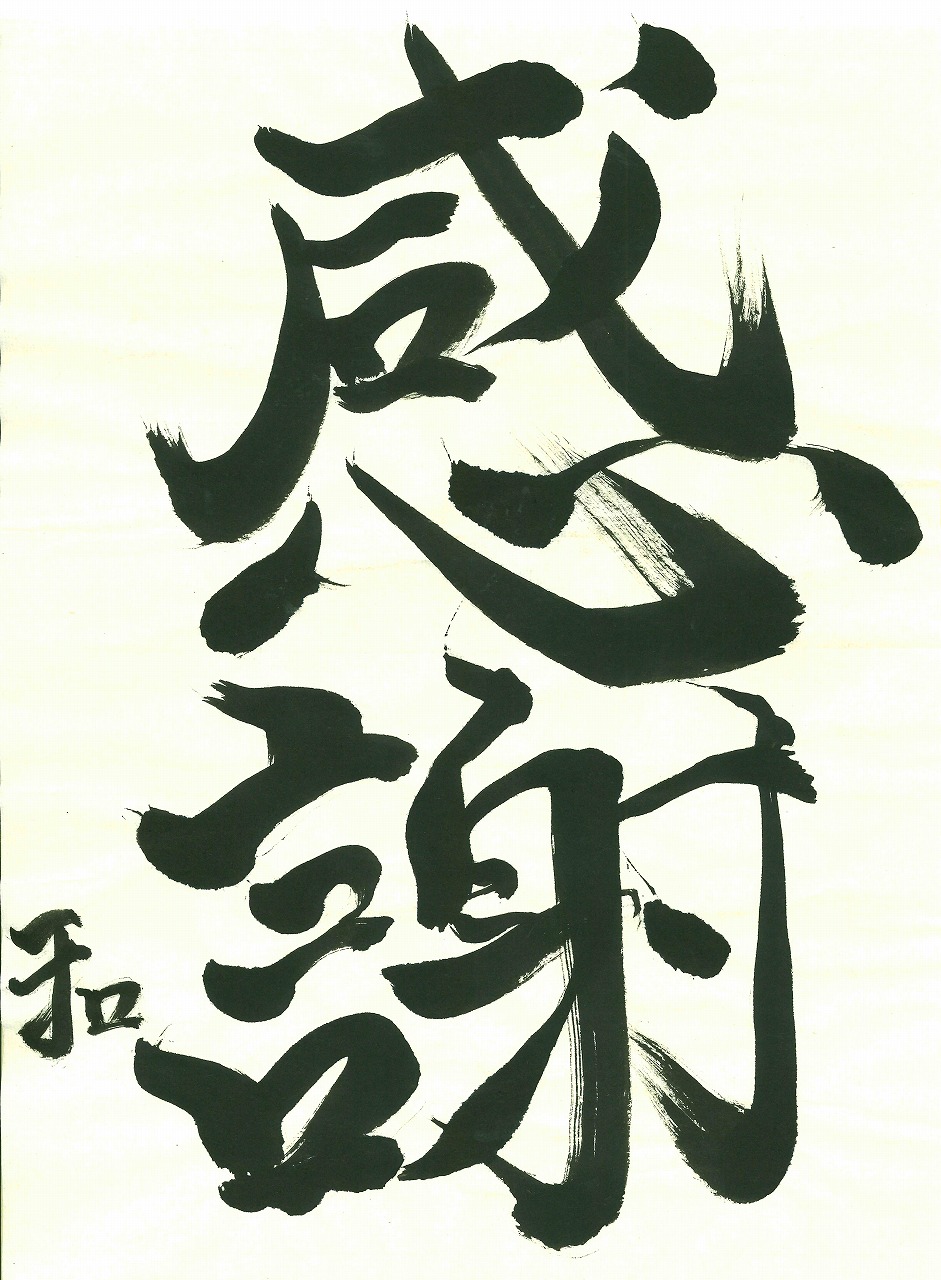 感謝
和